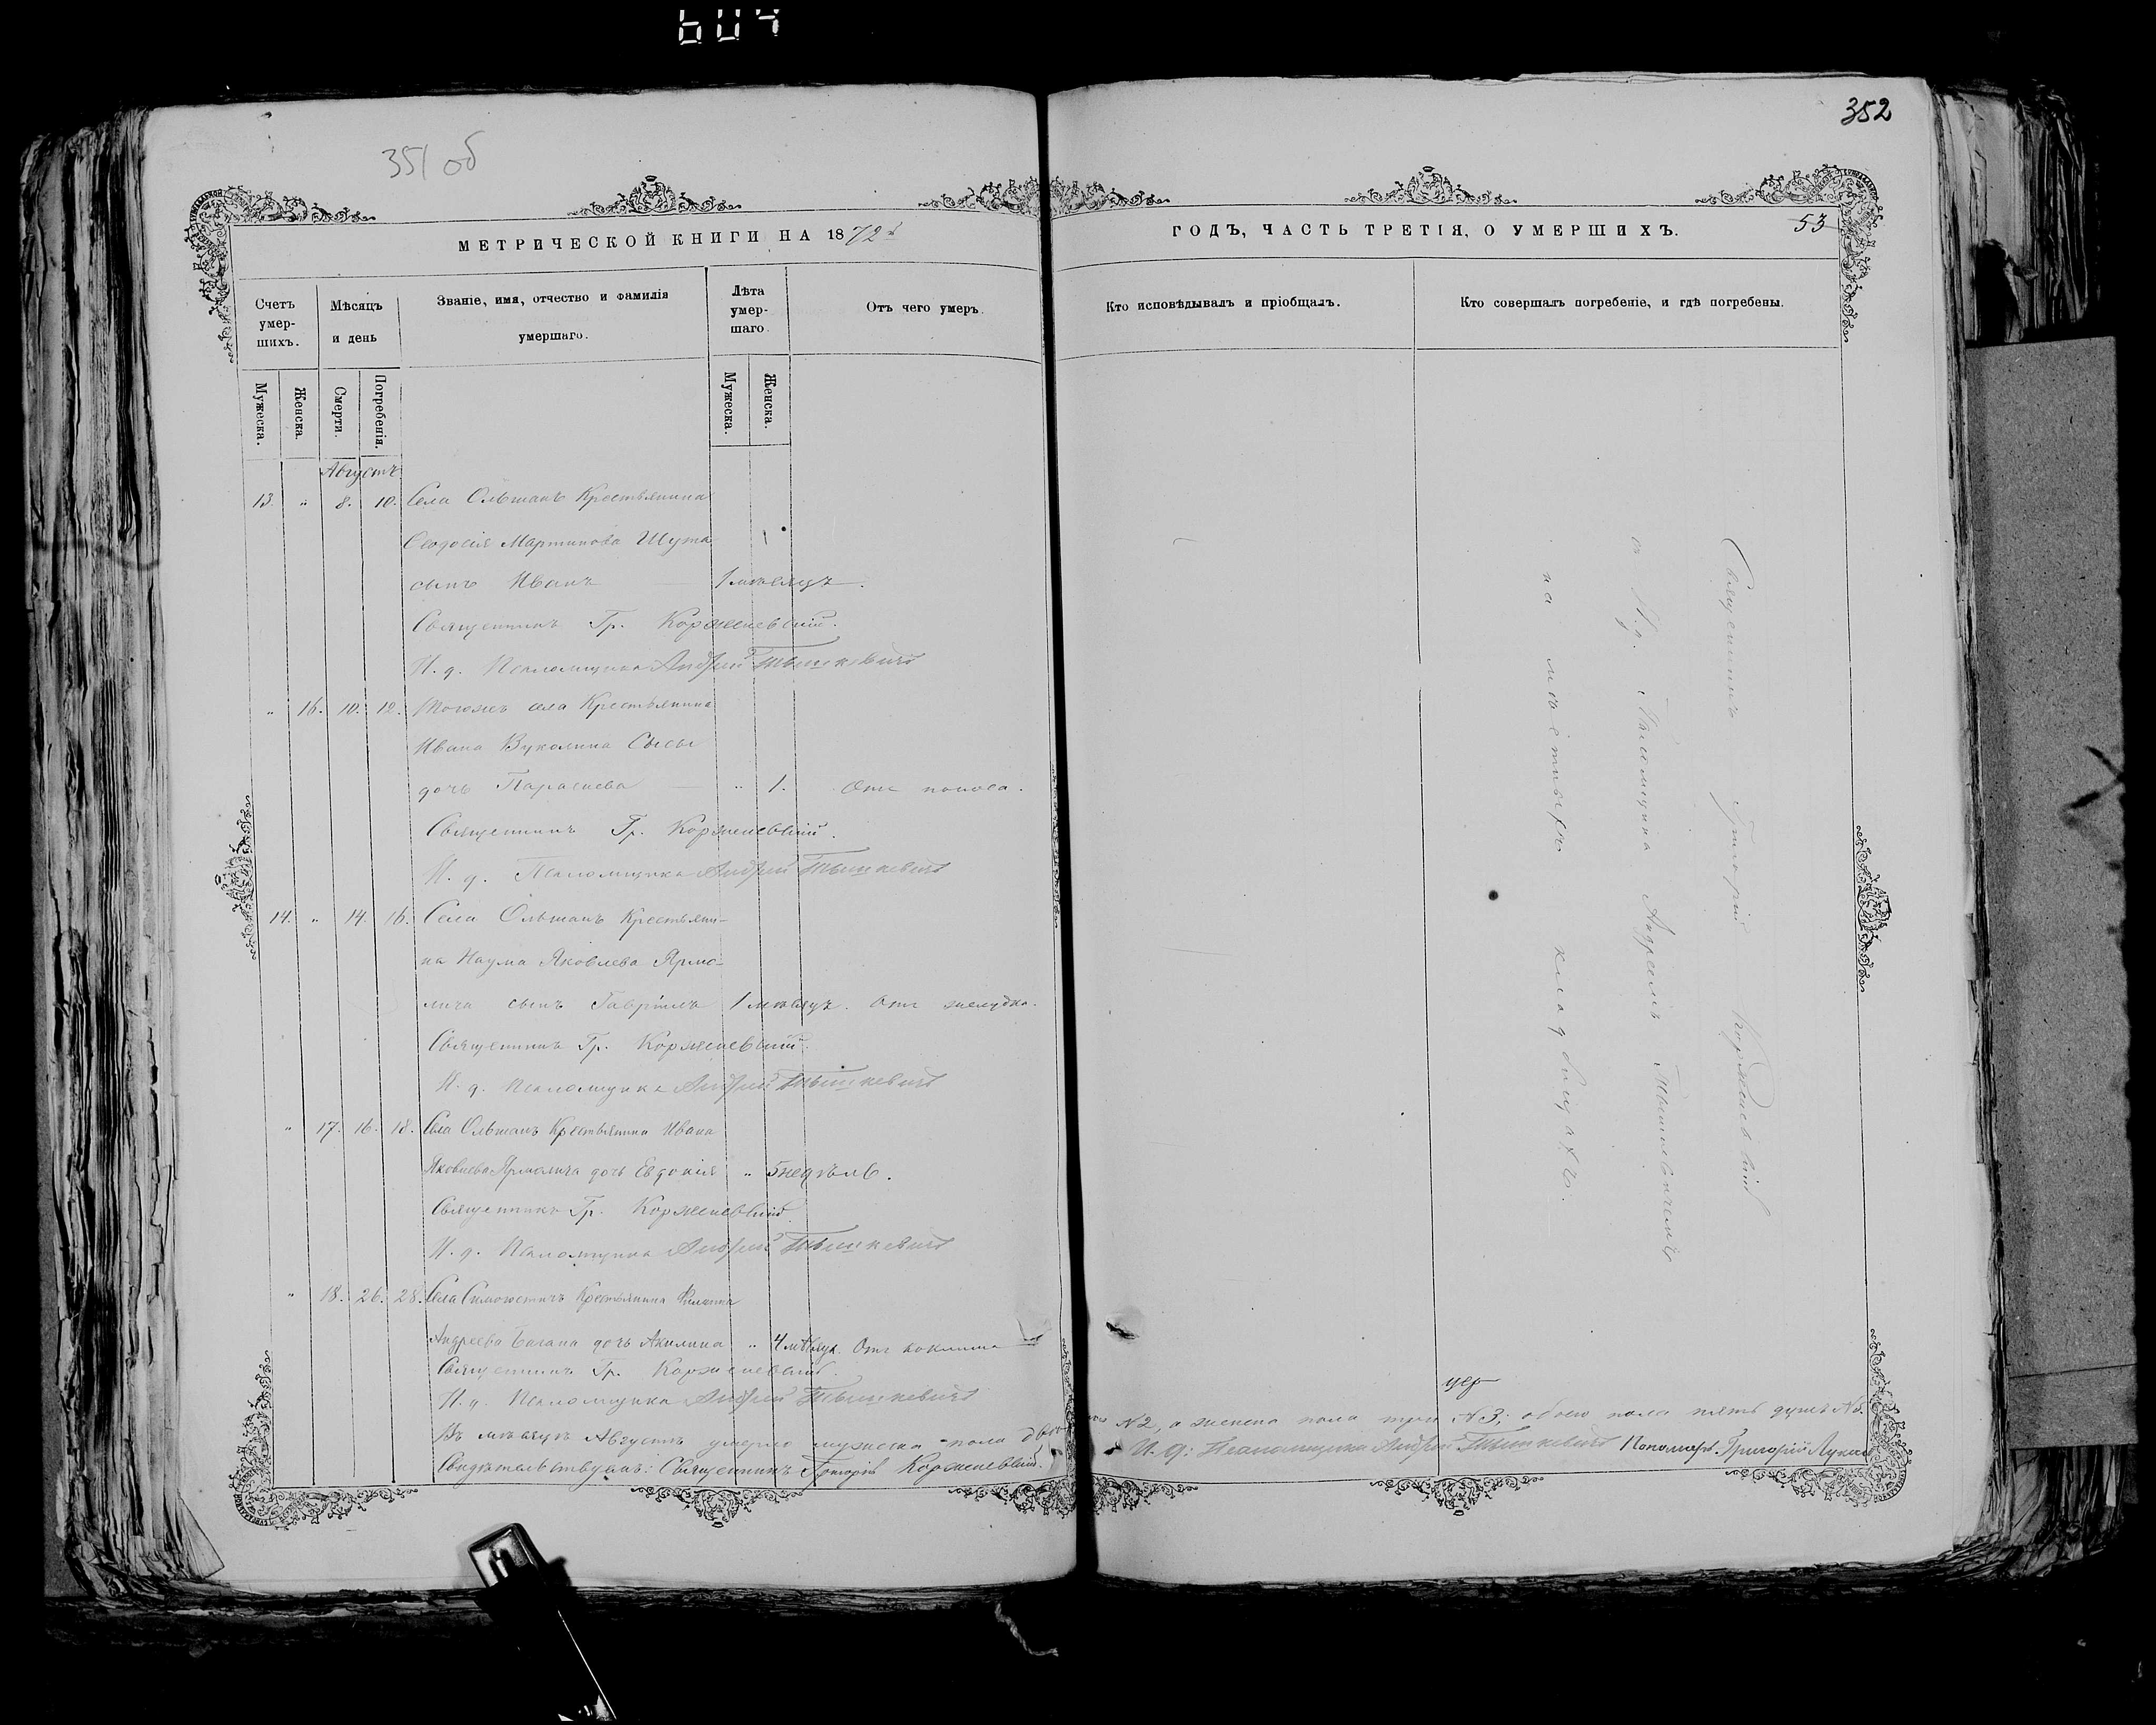 604
351 об
352
МЕТРИЧЕСКОЙ КНИГИ НА 1872й
ГОДЪ, ЧАСТЬ ТРЕТІЯ, О УМЕРШИХЪ.
53
Счетъ умер-шихъ.
Мѣсяцъ и день
Званіе, имя, отчество и фамилія
умершаго.
Лѣта умер-шаго.
Отъ чего умеръ.
Кто исповѣдывалъ и пріобщалъ.
Кто совершалъ погребеніе, и гдѣ погребены.
Мужеска.
Женска.
Смерти.
Погребенія.
Мужеска.
Женска.
Августъ
13. " 8. 10. Села Ольшанъ Крестьянина
Ѳеодосія Мартинова Шута
сынъ Иванъ — 1 мѣсяцъ.
Священникъ Гр. Корженевскій.
И. д. Псаломщика Андрей Тышкевичъ
" 16. 10. 12. Тогожъ села Крестьянина
Ивана Вуколина Сысы
дочь Параскева — " 1. Отъ поноса.
Священникъ Гр. Корженевскій.
И. д. Псаломщика Андрей Тышкевичъ
14. " 14. 16. Села Ольшанъ Крестьяни-
на Наума Яковлева Ярмо-
лича сынъ Гавріилъ 1 мѣсяцъ. Отъ желудка.
Священникъ Гр. Корженевскій.
И. д. Псаломщика Андрей Тышкевичъ
" 17. 16. 18. Села Ольшанъ Крестьянина Ивана
Яковлева Ярмолича дочь Евдокія " 5 недѣль.
Священникъ Гр. Корженевскій.
И. д. Псаломщика Андрей Тышкевичъ
" 18. 26. 28. Села Крестьянина Филиппа
Андреева дочь Акилина " 4 мѣсяц. Отъ коклюша
Священникъ Гр. Корженевскій.
И. д. Псаломщика Андрей Тышкевичъ
Въ мѣсяцѣ Августѣ умерло мужеска пола двое № 2, а женска пола три № 3; обоего пола пять душъ № 5.
Свидѣтельствуемъ: Священникъ Григорій Корженевскій. И. д. Псаломщика Андрей Тышкевичъ Пономарь Григорій
Священникъ Григорій Корженевскій
съ И. д. Псаломщика Андреемъ Тышкевичемъ
на мѣстныхъ кладбищахъ.